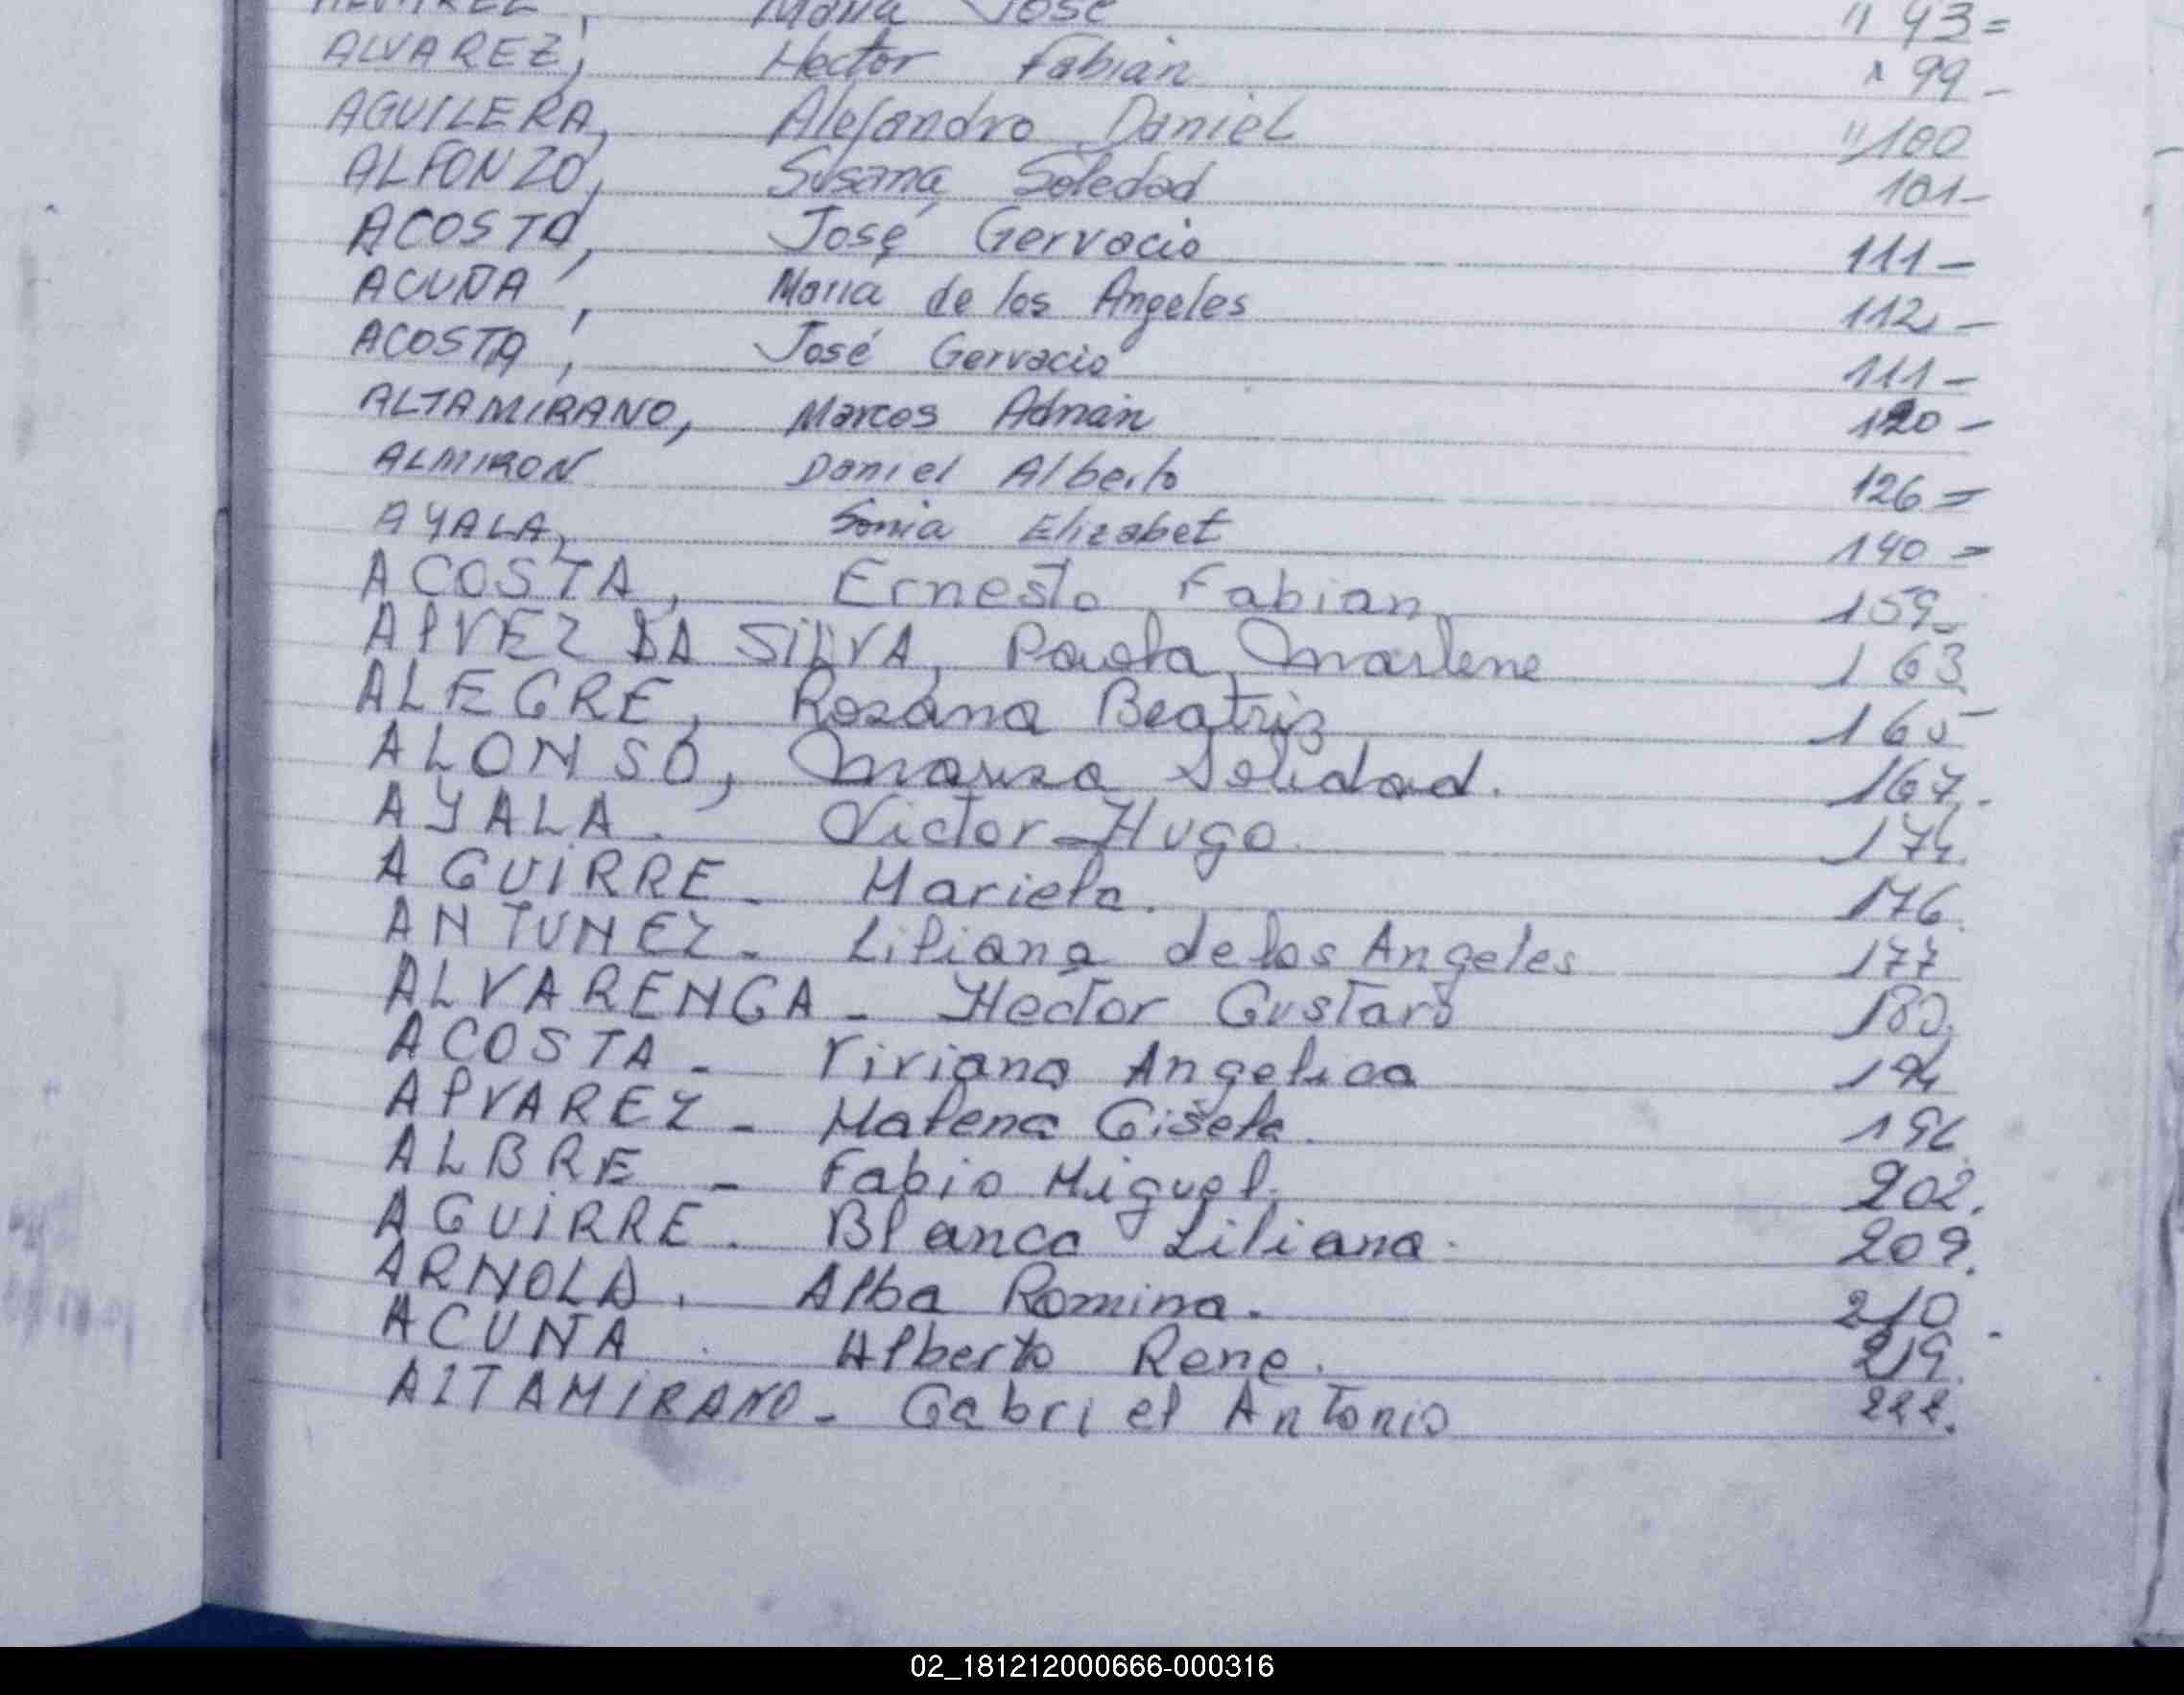 María José " 93=
ALVAREZ, Hector Fabián " 99-
AGUILERA, Alejandro Daniel " 100
ALFONZO, Susana Soledad 101-
ACOSTA, José Gervacio 111-
ACUÑA, María de los Angeles 112-
ACOSTA, José Gervacio 111-
ALTAMIRANO, Marcos Adrián 120-
ALMIRON Daniel Alberto 126=
AYALA, Sonia Elizabet 140=
ACOSTA, Ernesto Fabian 159-
ALVEZ DA SILVA, Paola Marlene 163
ALEGRE, Rosana Beatriz 165
ALONSO, Soledad. 167.
AYALA. Victor Hugo. 174.
AGUIRRE- Mariela. 176.
ANTUNEZ- Liliana de los Angeles 177
ALVARENGA- Hector Gustavo 180.
ACOSTA- Viviana Angelica 194
ALVAREZ- Malena Gisela. 196
ALBRE- Fabio Miguel. 202.
AGUIRRE. Blanca Liliana. 209.
ARNOLD. Alba Romina. 210.
ACUÑA. Alberto Rene. 219.
ALTAMIRANO- Gabriel Antonio 222.
02_181212000666-000316